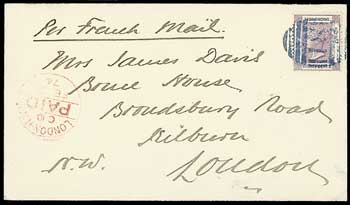 Per French Mail.
Mrs James Davis
Bone House
Brondsbury Road
Kilburn
N.W.
London
LONDON
PAID
74